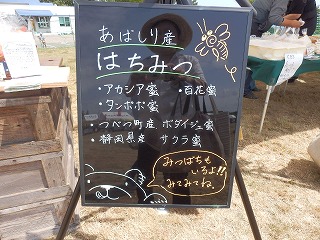 あばしり産
はちみつ
・アカシア蜜 ・百花蜜
・タンポポ蜜
・つべつ町産 ボダイジュ蜜
・静岡県産 サクラ蜜
みつばちも
いるよ!!
みてみてね。